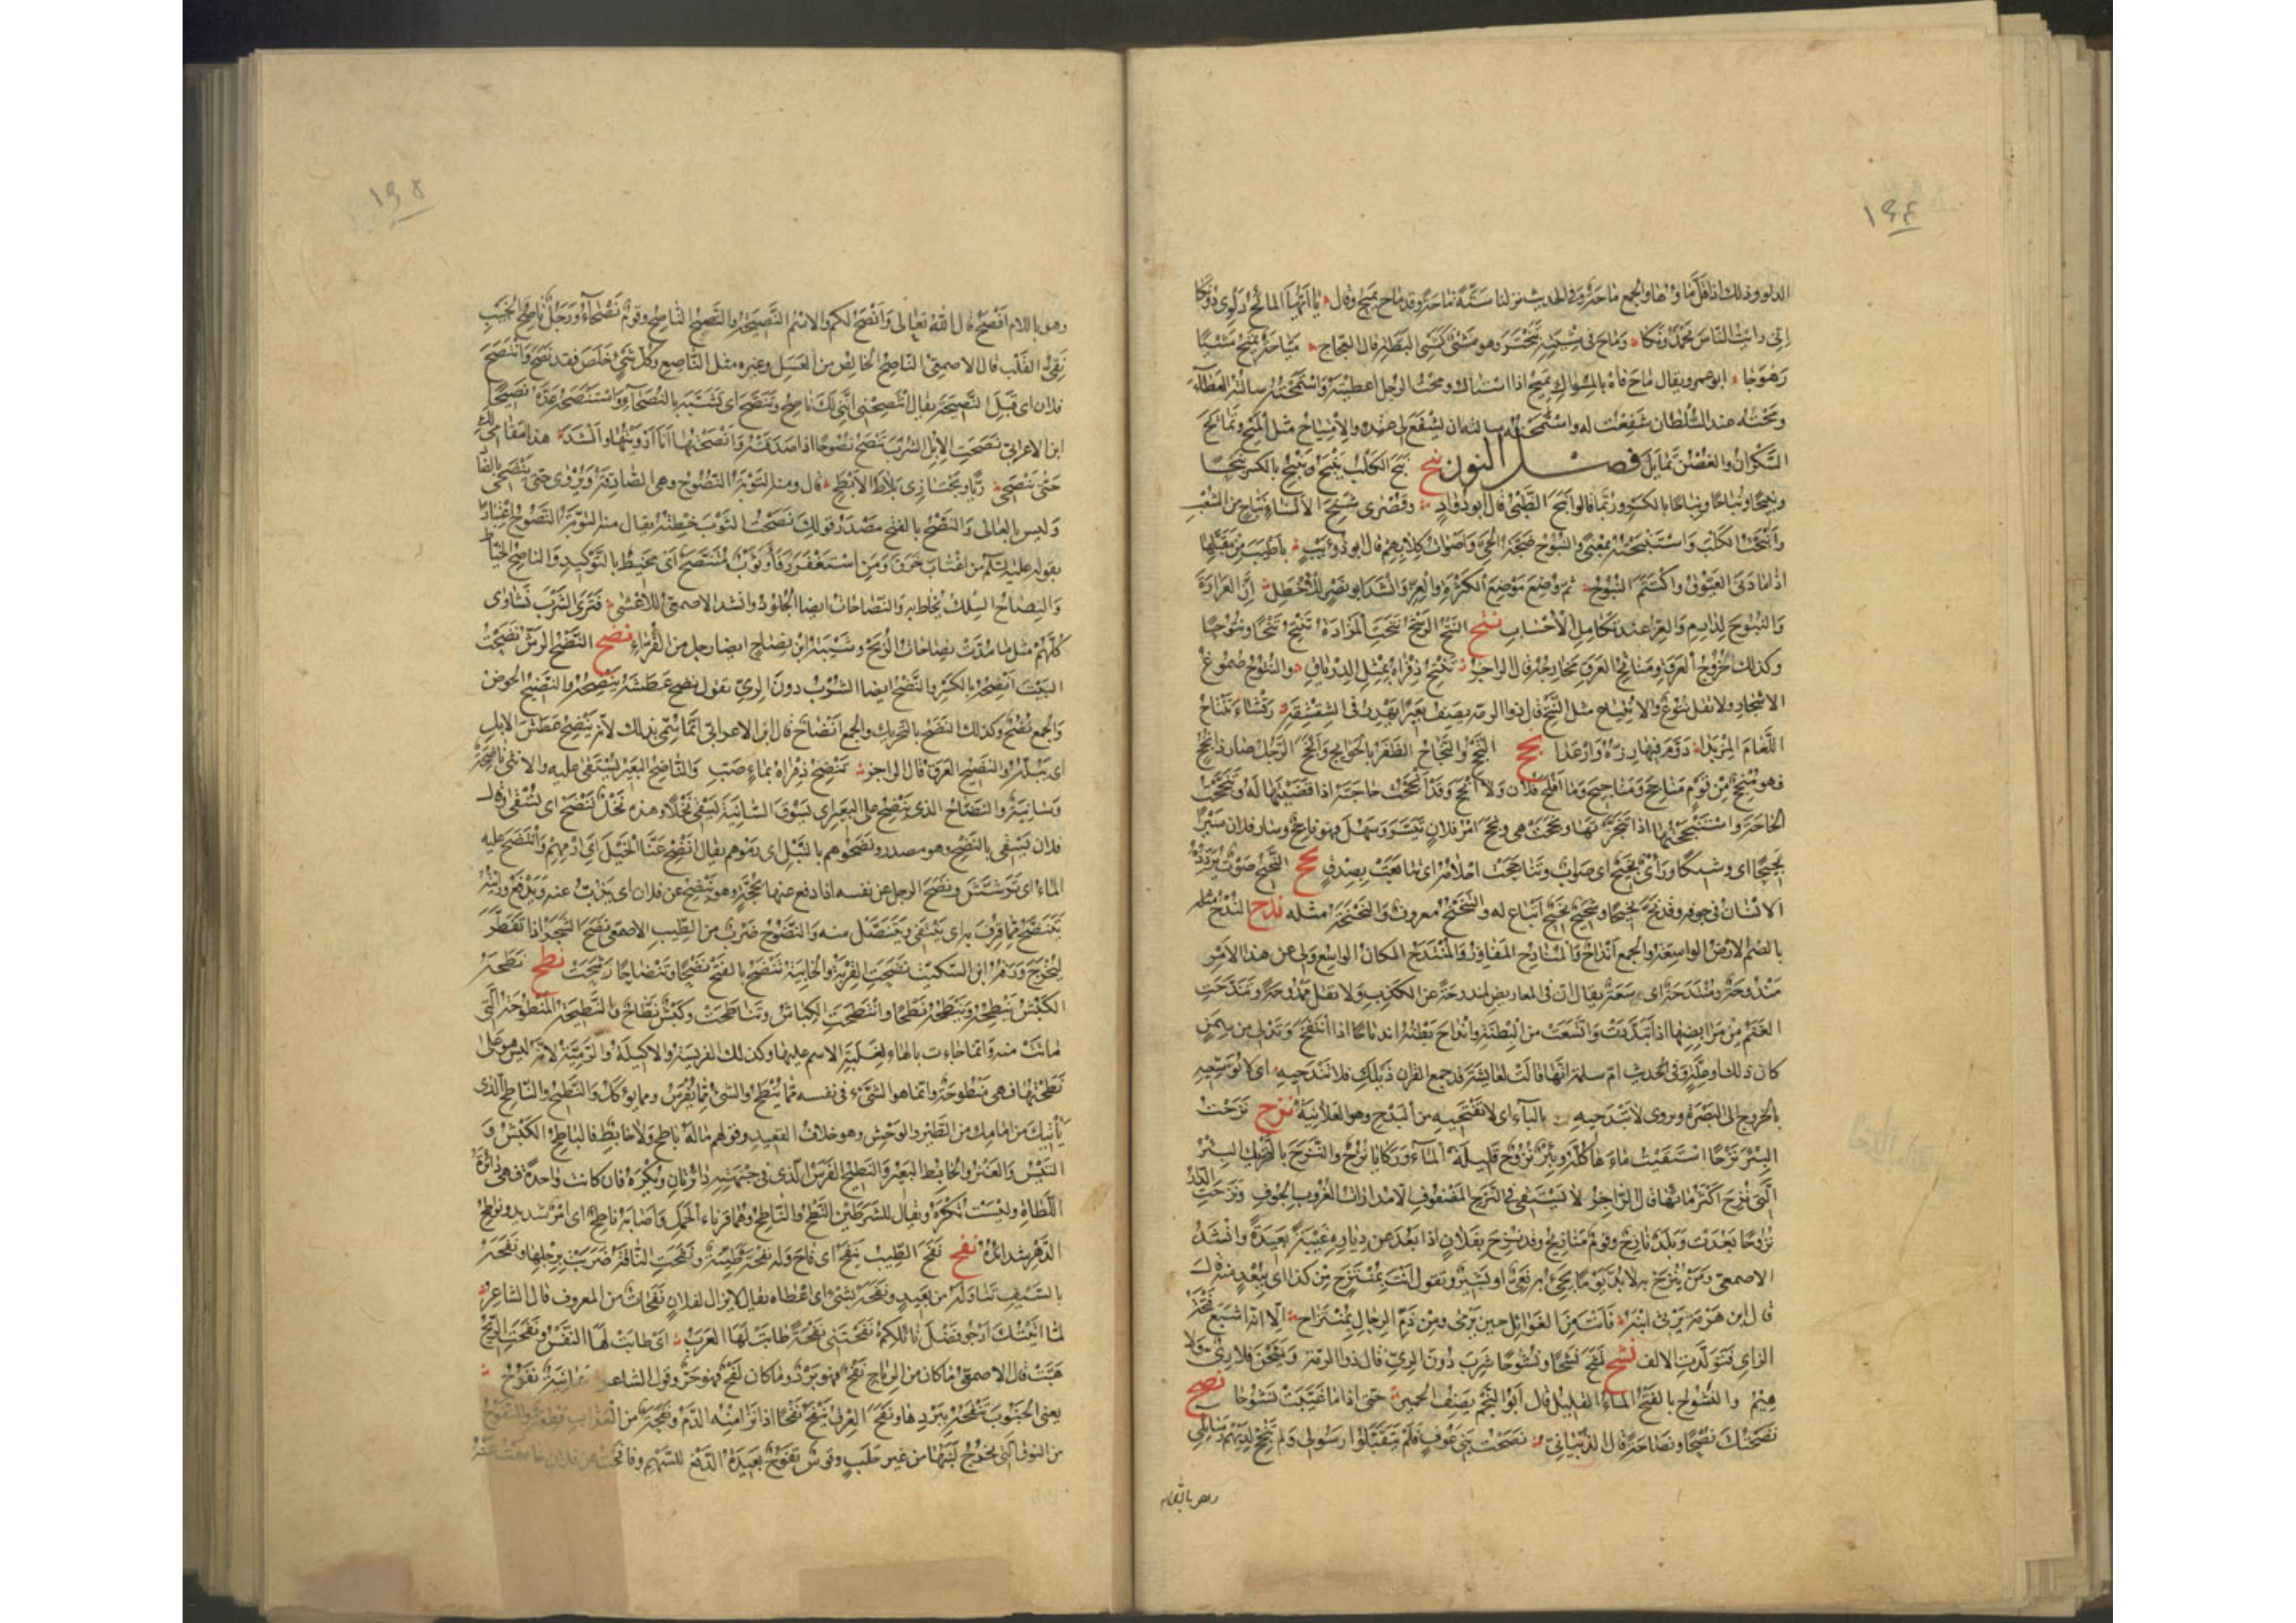 ١٩٤
الدلو وذلك اذا قل ماؤها والجمع ماحة وفى الحديث نزلنا ستة ماحة وقد ماح يميح وقال يا ايها المائح دلوى دونكا
انى رايت الناس يحمدونكا وماح فى مشيته تبختر وهو مشى كمشى البطة قال العجاج مياحة تميح مشيا
رهوجا ابو عمرو يقال ماح فاه بالمسواك يميح اذا استاك ومحت الرجل اعطيته واستمحته سالته العطاء
ومحته عند السلطان شفعت له واستمحته سالته ان يشفع لى عنده والامتياح مثل الميح وتمايح
السكران والغصن تمايل فصل النون نبح نبح الكلب ينبح وينبح بالكسر نبحا
ونبيحا ونباحا ونباحا بالكسر وربما قالوا نبح الظبى قال ابو دواد وقصرى شنج الانساء نباح من الشعب
وانبحت الكلب واستنبحته بمعنى والنبوح ضجة الحى واصوات كلابهم قال ابو ذؤيب باطيب من مقبلها
اذا ما دنى العيوق واكتتم النبوح ثم وضع موضع الكثرة والعز وانشد ابو نصر للاخطل ان العرارة
والنبوح لدارم والعز عند تكامل الاحساب نتح النتح الرشح نتحت المزادة تنتح نتحا ونتوحا
وكذلك خروج العرق ومناتح العرق مخارجه قال الراجز تنتح ذفراه بمثل الدرياق والنتوح صموغ
الاشجار ولا تقل نتوغ والانتياح مثل النتح قال ذو الرمة يصف بعيرا يهدر فى الشقشقة رقشاء تنتاح
اللغام المزبدا دوم فيها رزه وارعدا نجح النجح والنجاح الظفر بالحوايج وانجح الرجل صار ذا نجح
فهو منجح من قوم مناجح ومناجيح وما افلح فلان ولا انجح وقد انجحت حاجته اذا قضيتها له وتنجحت
الحاجة واستنجحتها اذا تنجزتها ونجحت هى ونجح امر فلان تيسر وسهل فهو ناجح وسار فلان سيرا
نجيحا اى وشيكا وراى نجيح اى صواب وتناجحت احلامه اى تتابعت بصدق نحح النحيح صوت يردده
الانسان فى جوفه وقد نح نحيحا وشحيح نحيح اتباع له والتنحنح معروف والنحنحة مثله ندح الندح مثله
بالضم الارض الواسعة والجمع انداح والمناديح المفاوز والمنتدح المكان الواسع ولى عن هذا الامر
مندوحة ومنتدحة اى سعة يقال ان فى المعاريض لمندوحة عن الكذب ولا تقل ممدوحة وتندحت
الغنم من مرابضها اذا تبددت واتسعت من البطنة وانداح بطنه اندياحا اذا انتفخ وتدلى من سمن
كان ذلك او علة وفى الحديث ام سلمة انها قالت لعايشة قد جمع القران ذيلك فلا تندحيه اى لا توسعيه
بالخروج الى البصرة ويروى لا تبدحيه بالباء اى لا تفتحيه من البدح وهو العلانية نزح نزحت
البئر نزحا استقيت ماءها كله وبئر نزوح قليلة الماء وركايا نزح والنزح بالتحريك البئر
التى نزح اكثر مائها قال الراجز لا يستقى فى النزح المضفوف الا مدارات الغروب الجوف ونزحت الدار
نزوحا بعدت وبلد نازح وقوم منازيح وقد نزح بفلان اذا بعد عن دياره غيبة بعيدة وانشد
الاصمعى ومن ينزح به لا بد يوما يجئ به نعى او بشير وتقول انت بمنتزح من كذا اى ببعد منه
قال ابن هرمة يرثى ابنه فانت من الغوائل حين ترمى ومن ذم الرجال بمنتزاح الا انه اشبع فتحة
الزاى فتولدت الالف نشح نشح نشحا ونشوحا شرب دون الرى قال ذو الرمة وينشحن فلا رى ولا
هيم والنشوح بالفتح الماء القليل قال ابو النجم يصف الحمير حتى اذا ما غيبت نشوحا نصح
نصحتك نصحا ونصاحة قال الذبيانى نصحت بنى عوف فلم يتقبلوا رسولى ولم تنجح لديهم رسائلى
وهو باللام
١٩٥
وهو باللام افصح قال الله تعالى وانصح لكم والاسم النصيحة والنصيح الناصح وقوم نصحاء ورجل ناصح الجيب
نقى القلب قال الاصمعى الناصح الخالص من العسل وغيره مثل الناصع وكل شئ خلص فقد نصح وانتصح
فلان اى قبل النصيحة يقال انتصحنى اننى لك ناصح وتنصح اى تشبه بالنصحاء واستنصحه عده نصيحا
ابن الاعرابى نصحت الابل الشرب تنصح نصوحا اذا صدقته وانصحتها انا ارويتها وانشد هذا مقامى لك
حتى تنصحى ريا وتجتازى بلاط الابطح قال ومنه التوبة النصوح وهى الصادقة ويروى حتى تنضحى بالضاد
وليس بالعالى والنصح بالفتح مصدر قولك نصحت الثوب خطته يقال منه التوبة النصوح اعتبارا
بقوله عليه السلم من اغتاب خرق ومن استغفر رفا وثوب متنصح اى مخيط بالتوكيد والناصح الخياط
والنصاح السلك يخاط به والنصاحات ايضا الجلود وانشد الاصمعى للاعشى فترى الشرب نشاوى
كلهم مثل ما مدت نصاحات الربح وشيبة ابن نصاح ايضا رجل من القراء نضح النضح الرش نضحت
البيت انضحه بالكسر والنضح ايضا الشرب دون الرى تقول نضح عطشه ينضحه والنضيح الحوض
والجمع نضح وكذلك النضح بالتحريك والجمع انضاح قال ابن الاعرابى انما سمى بذلك لانه ينضح عطش الابل
اى يبله والنضيح العرق قال الراجز تنضح ذفراه بماء صب والناضح البعير يستقى عليه والانثى ناضحة
وسانية والنضاح الذى ينضح على البعير اى يسوق السانية يسقى نخلا وهذه نخل تنضح اى تسقى
فلان يسقى بالنضح وهو مصدر ونضحوهم بالنبل اى رموهم يقال انضح عنا الخيل اى ارمهم وانتضح عليه
الماء اى ترشش ونضح الرجل عن نفسه اذا دفع عنها بحجة وهو ينضح عن فلان اى يذب عنه ويدفع ورايته
يتنضح مما قرف به اى ينتفى ويتنصل منه والنضوح ضرب من الطيب الاصمعى نضح الشجر اذا تفطر
ليخرج ورقه ابن السكيت نضحت القربة والخابية تنضح بالفتح نضحا وتنضاحا رشحت نطح نطحه
الكبش ينطحه وينطحه نطحا وانتطحت الكباش وتناطحت وكبش نطاح والنطيحة المنطوحة التى
ماتت منه وانما جاءت بالهاء لغلبة الاسم عليها وكذلك الفريسة والاكيلة والرمية لانه ليس هو على
نطحتها فهى منطوحة وانما هو الشئ فى نفسه مما ينطح والشئ مما يفرس ومما يؤكل والنطيح والناطح الذى
يأتيك من امامك من الطير والوحش وهو خلاف القعيد وقولهم ماله ناطح ولا خابط فالناطح الكبش و
التيس والعنز والخابط البعير والنطيح الفرس الذى فى جبهته دائرتان ويكره فان كانت واحدة فهى دائرة
اللطاة وليست تكره ويقال للشرطين النطح والناطح وهما قرناء الحمل واصابه ناطح اى امر شديد ونواطح
الدهر شدائده نفح نفح الطيب ينفح اى فاح وله نفحة طيبة ونفحت الناقة ضربت برجلها ونفحه
بالسيف تناوله من بعيد ونفحه بشئ اى اعطاه يقال لا يزال لفلان نفحات من المعروف قال الشاعر
لما اتيتك ارجو فضل نائلكم نفحتنى نفحة طابت لها العرب اى طابت لها النفس ونفحت الريح
هبت قال الاصمعى ما كان من الرياح نفح فهو برد وما كان لفح فهو حر وقول الشاعر نفوح
يعنى الجنوب تنفحه ببردها ونفح العرق ينفح نفحا اذا نزا منه الدم ونفحة من العذاب قطعة والنفوح
من النوق التى يخرج لبنها من غير حلب وقوس نفوح بعيدة الدفع للسهم